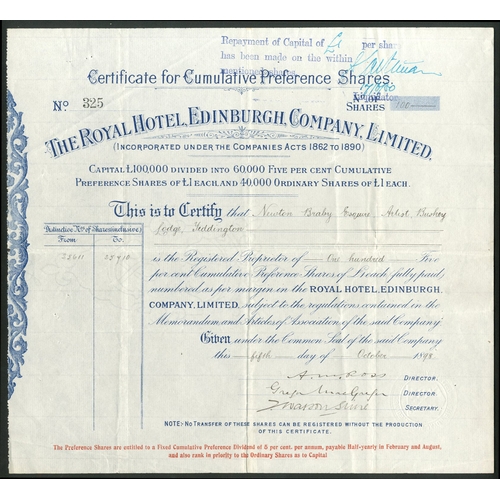 Repayment of Capital of £1 per share
has been made on the within
mentioned shares.
Certificate for Cumulative Preference Shares.
Liquidator
No. 325
No. OF
SHARES 100
THE ROYAL HOTEL, EDINBURGH, COMPANY, LIMITED.
(INCORPORATED UNDER THE COMPANIES ACTS 1862 TO 1890)
CAPITAL £100,000 DIVIDED INTO 60,000 FIVE PER CENT CUMULATIVE
PREFERENCE SHARES OF £1 EACH, AND 40,000 ORDINARY SHARES OF £1 EACH.
This is to Certify that Newton Braby Esquire Artist, Bushey
Lodge, Teddington
Distinctive Nos. of Shares (inclusive)
From To.
is the Registered Proprietor of One hundred Five
per cent Cumulative Preference Shares of £1 each, fully paid,
numbered as per margin in the ROYAL HOTEL, EDINBURGH,
COMPANY, LIMITED, subject to the regulations contained in the
Memorandum and Articles of Association of the said Company
Given under the Common Seal of the said Company
this fifth day of October 1898.
A. M. Ross DIRECTOR.
Gregor MacGregor DIRECTOR.
SECRETARY.
NOTE:- NO TRANSFER OF THESE SHARES CAN BE REGISTERED WITHOUT THE PRODUCTION
OF THIS CERTIFICATE.
The Preference Shares are entitled to a Fixed Cumulative Preference Dividend of 5 per cent. per annum, payable Half-yearly in February and August,
and also rank in priority to the Ordinary Shares as to Capital